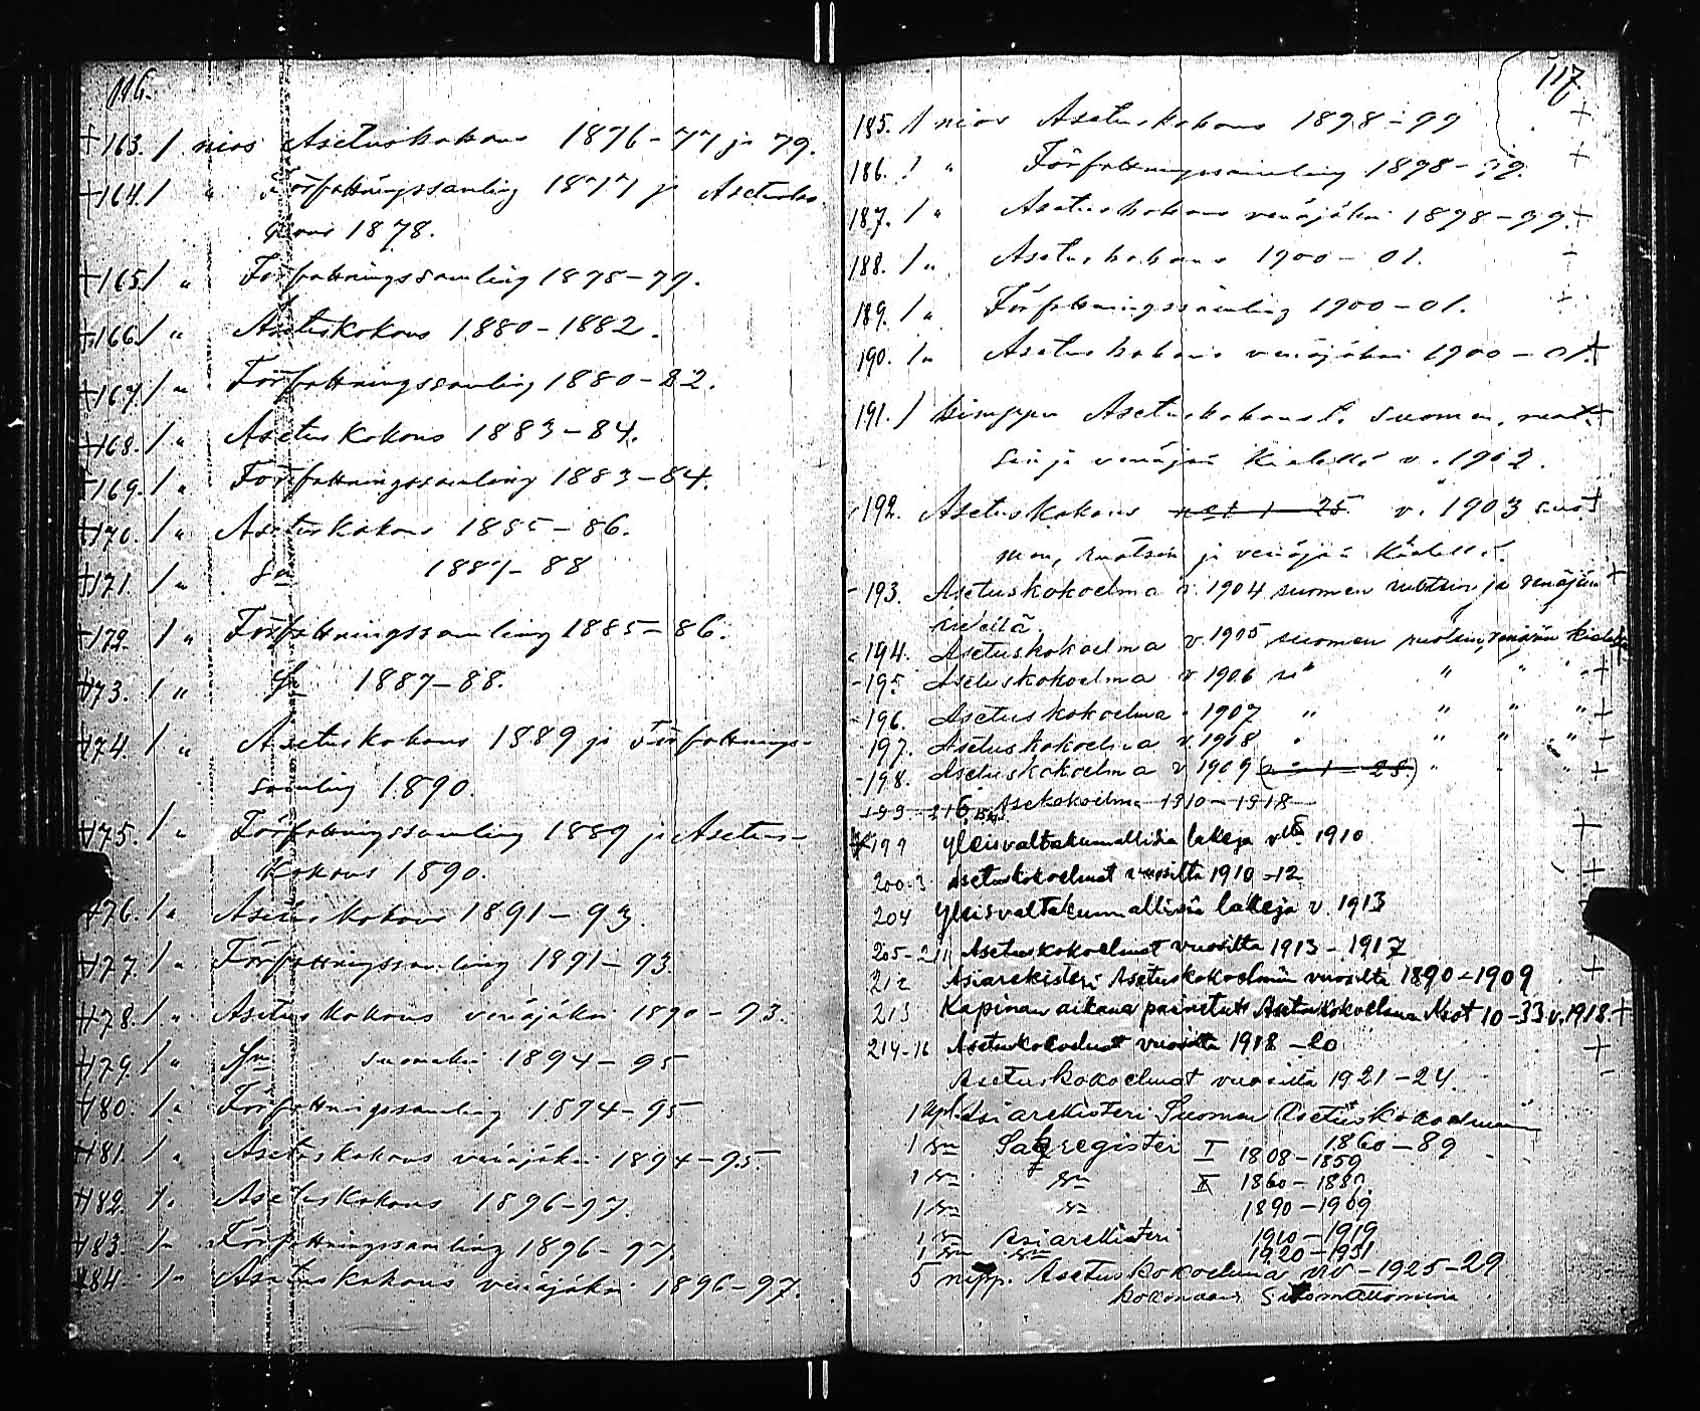 116.
+163. 1 nios Asetuskokous 1876-77 ja 79.
+164. 1 " Författningssamling 1877 ja Asetusko-
kous 1878.
+165. 1 " Författningssamling 1878-79.
+166. 1 " Asetuskokous 1880-1882.
+167. 1 " Författningssamling 1880-82.
+168. 1 " Asetuskokous 1883-84.
+169. 1 " Författningssamling 1883-84.
+170. 1 " Asetuskokous 1885-86.
+171. 1 " Sn 1887-88
+172. 1 " Författningssamling 1885-86.
+173. 1 " Sn 1887-88.
+174. 1 " Asetuskokous 1889 ja Författnings-
samling 1890.
+175. 1 " Författningssamling 1889 ja Asetus-
kokous 1890.
+176. 1 " Asetuskokous 1891-93.
+177. 1 " Författningssamling 1891-93
+178. 1 " Asetuskokous venäjäksi 1890-93.
+179. 1 " Sn suomeksi 1894-95
+180. 1 " Författningssamling 1894-95
+181. 1 " Asetuskokous venäjäksi 1894-95
+182. 1 " Asetuskokous 1896-97.
+183. 1 " Författningssamling 1896-97.
+184. 1 " Asetuskokous venäjäksi 1896-97.
117
185. 1 nios Asetuskokous 1898-99 +
186. 1 " Författningssamling 1898-99. +
187. 1 " Asetuskokous venäjäksi 1898-99. +
188. 1 " Asetuskokous 1900-01. -
189. 1 " Författningssamling 1900-01. +
190. 1 " Asetuskokous venäjäksi 1900-01. +
191. 1 Asetuskokousta suomen, ruot- +
sin ja venäjän kielellä v. 1902.
192. Asetuskokous 1-25 v. 1903 suo- +
men, ruotsin ja venäjän kielellä.
-193. Asetuskokoelma v. 1904 suomen ruotsin ja venäjän +
kielellä.
194. Asetuskokoelma v. 1905 suomen ruotsin, venäjän kielellä +
-195. Asetuskokoelma v. 1906 " " " +
-196. Asetuskokoelma " 1907 " " " " +
-197. Asetuskokoelma v. 1908 " " " " +
-198. Asetuskokoelma v. 1909 (1-28.) " " " +
199-216 Asekokoelma 1910-1918
199 Yleisvaltakunnallisia lakeja v:lta 1910 +
200-3 Asetuskokoelmat vuosilta 1910-12 +
204 Yleisvaltakunnallisia lakeja v. 1913
205-211 Asetuskokoelmat vuosilta 1913-1917
212 Asiarekisteri Asetuskokoelmiin vuosilta 1890-1909 +
213 Kapinan aikana painetut Asetuskokoelman N:ot 10-33 v. 1918. +
214-16 Asetuskokoelmat vuosilta 1918-20 +
Asetuskokoelmat vuosilta 1921-24. -
1 kpl. Asiarekisteri Suomen Asetuskokoelmaan
1860-89
1 sn Sakregister I 1808-1859
1 sn sn II 1860-1889
1 sn sn 1890-1909
1 sn Asiarekisteri 1910-1919
1 sn sn 1920-1931
5 nipp. Asetuskokoelmia vv-1925-29
kokonaan sitomattomina